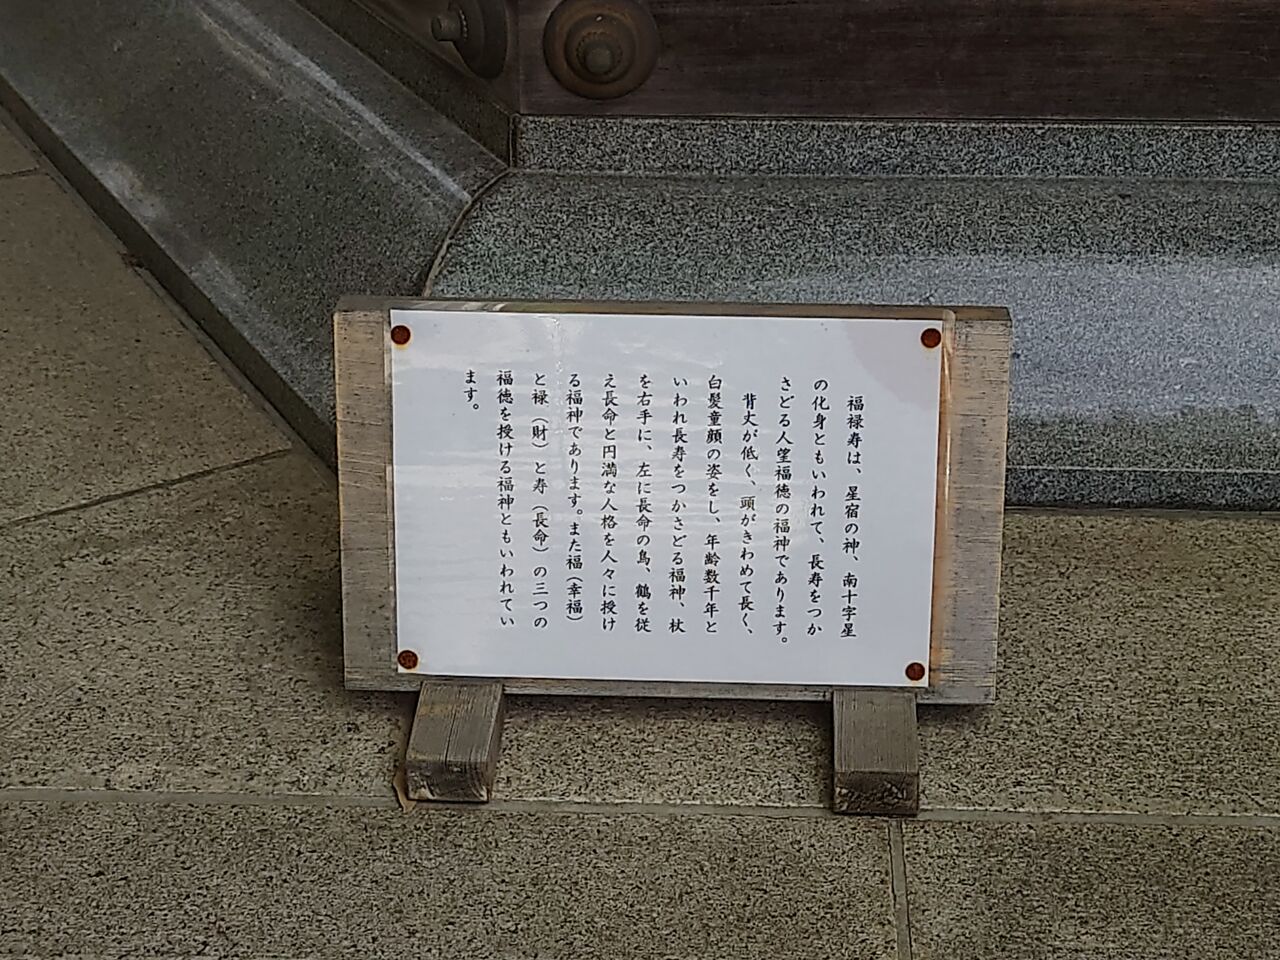 福禄寿は、星宿の神、南十字星
の化身ともいわれて、長寿をつか
さどる人望福徳の福神であります。
背丈が低く、頭がきわめて長く、
白髪童顔の姿をし、年齢数千年と
いわれ長寿をつかさどる福神、杖
を右手に、左に長命の鳥、鶴を従
え長命と円満な人格を人々に授け
る福神であります。また福（幸福）
と禄（財）と寿（長命）の三つの
福徳を授ける福神ともいわれてい
ます。